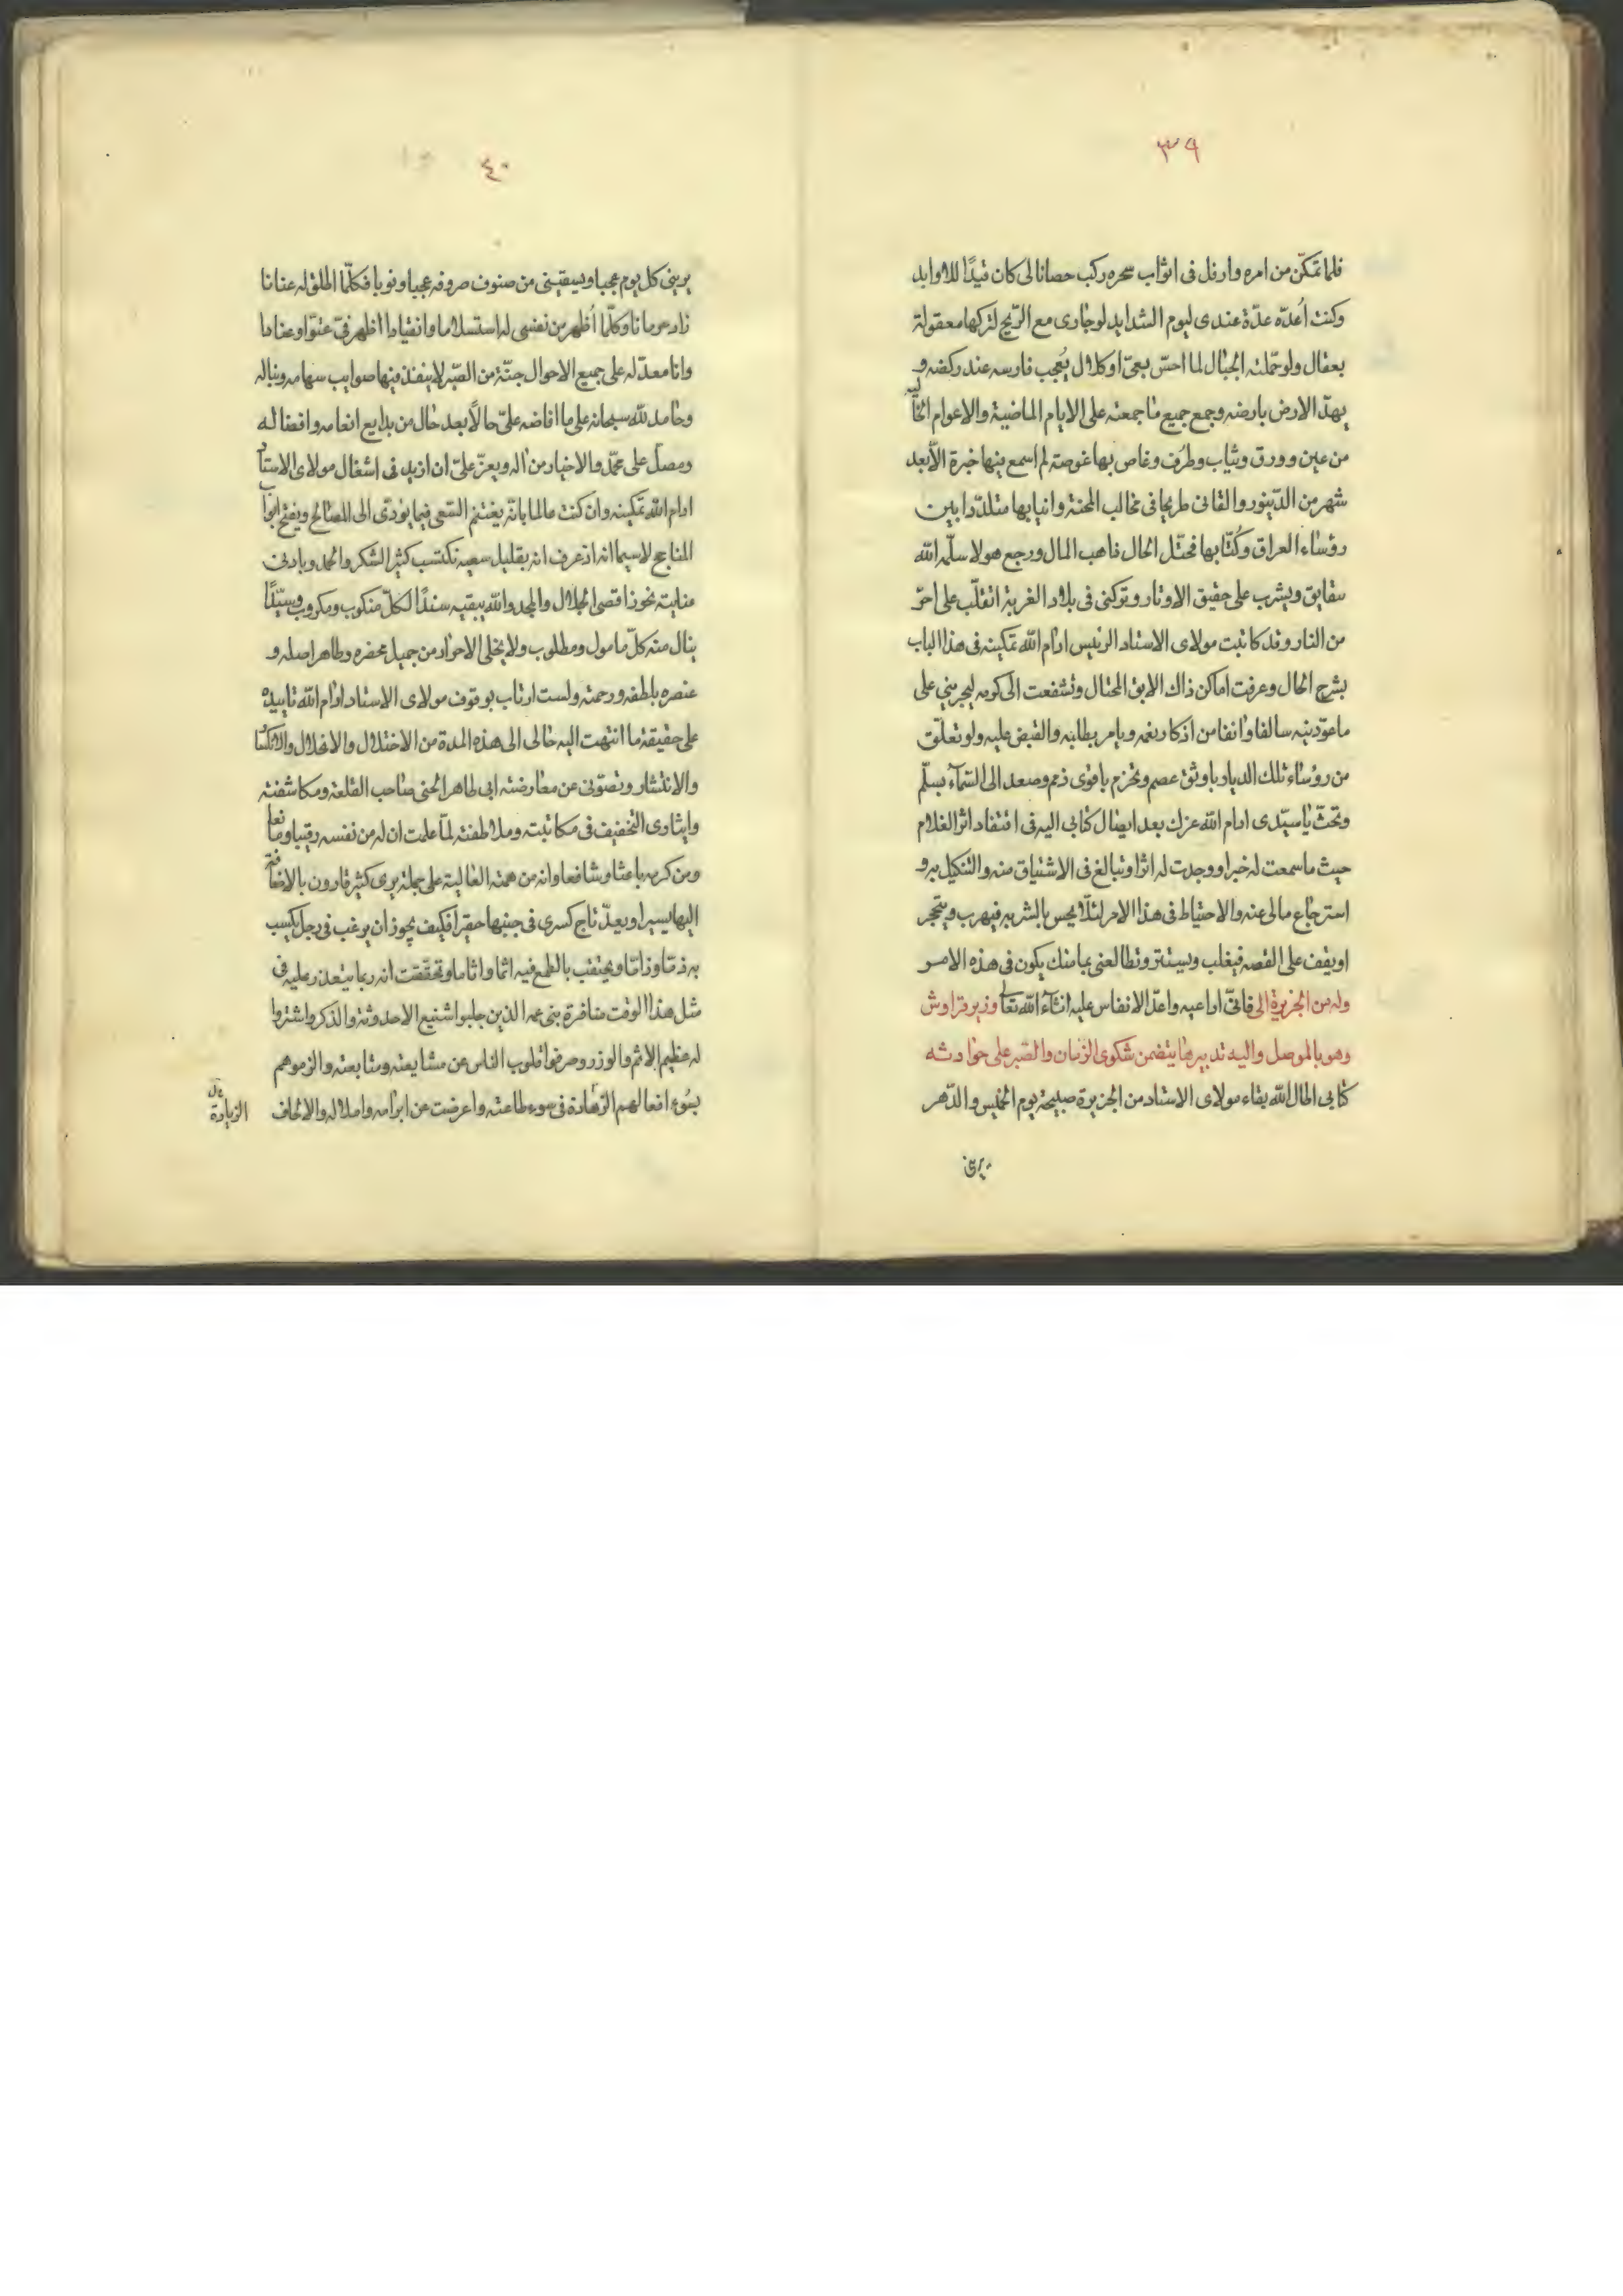 ٣٩
فلما تمكّن من امره وارفل فى اثواب سحره ركب حصانا لى كان قيدًا للاوابد
وكنت اُعدّه عدّة عندى ليوم الشدايد لو جارى مع الرّيح لتركها معقولة
بعقال ولو حمّلته الجبال لما احسّ بعىّ او كلال يُعجب فارسه عند ركضه و
يهدّ الارض بارضه وجمع جميع ما جمعته على الايام الماضية والاعوام الخاليه
من عين وورق وثياب وطرف وغاص بها غوصة لم اسمع فيها خبره الّا بعد
شهر من الدّينور والقانى طريحا فى مخالب المحنة وانيابها متلدّدا بين
رؤساء العراق وكُتّابها فمختّل الحال ذاهب المال ورجع هو لا سلّمه الله
يتقايق ويشرب على حقيق الاوتار وتركنى فى بلاد الغربة اتقلّب على احرّ
من النار وقد كاتبت مولاى الاستاد الرئيس ادام الله تمكينه فى هذا الباب
بشرح الحال وعرفت اماكن ذاك الابق المحتال وتشفعت الى كرمه ليجرينى على
ما عوّدنيه سالفا وانفا من اذكار نعمه ويامر بطلبه والقبض عليه ولو تعلّق
من رؤساء تلك الديار باوثق عصم وتحزم باقوى ذمم وصعد الى السّماء بسلّم
وتحثّ يا سيّدى ادام الله عزك بعد ايصال كتابى اليه فى افتقاد اثر الغلام
حيث ما سمعت له خبرا ووجدت له اثرا وتبالغ فى الاشتياق منه والتنكيل به و
استرجاع مالى عنه والاحتياط فى هذا الامر لئلّا يحس بالشر به فيهرب ويتجر
او يقف على القصه فيغلب ويستتر وتطالعنى بما منك يكون فى هذه الامر
وله من الجزيرة الى فانىّ اراعيه واعدّ الانفاس عليه انشاء الله تعالى وزير قراوش
وهو بالموصل واليه تدبيرها يتضمن شكوى الزمان والصّبر على حوادثه
كتابى اطال الله بقاء مولاى الاستاد من الجزيرة صبيحة يوم الخميس والدّهر
يرينى
٤٠
يرينى كل يوم عجبا ويسقينى من صنوف صروفه عجبا ونوبا فكلّما اطلق له عنانا
زاد حرمانا وكلّما اُظهر من نفسى له استسلاما وانقيادا اظهر فىّ عتوّا وعنادا
وانا معدّ له على جميع الاحوال جنّة من الصّبر لا ينفذ فيها صوايب سهامه ونباله
وحامد لله سبحانه على ما افاضه علىّ حالًا بعد حال من بدايع انعامه وافضاله
ومصلّ على محمّد والاخيار من اله ويعزّ علىّ ان ازيد فى اشغال مولاى الاستاد
ادام الله تمكينه وان كنت عالما بانّه يغتنم السّعى فيما يؤدّى الى المصالح ويفتح ابواب
المناجح لا سيما انه اذ عرف انه بقليل سعيه نكتسب كثير الشكر والحمد وبادنى
عنايته نحوز اقصى الجلال والمجد والله يبقيه سندًا لكلّ منكوب ومكروب وسيّدًا
ينال منه كلّ مامول ومطلوب ولا يخلى الاحرار من جميل محضره وطاهر اصله و
عنصره بلطفه ورحمته ولست ارتاب بوقوف مولاى الاستاد ادام الله تاييده
على حقيقة ما انتهت اليه حالى الى هذه المدة من الاختلال والانحلال والانكسار
والانتشار وتصوّنى عن معارضته ابى طاهر الحنى صاحب القلعة ومكاشفته
وايثارى التخفيف فى مكاتبته وملاطفته لمّا علمت ان له من نفسه رقيبا ومانعا
ومن كرمه باعثا وشافعا وانه من همته العالية على جملة يرى كثير قارون بالاضافة
اليها يسيرا ويعدّ تاج كسرى فى جنبها حقيرا فكيف يجوز ان يرغب فى رجل يكسب
به ذمّا وذاما ويحتقب بالطمع فيه اثما واثاما وتحققت انه ربما يتعذر عليه فى
مثل هذا الوقت منافرة بنى عمه الذين جلبوا شنيع الاحدوثة والذكر واشتروا
له عظيم الاثم والوزر وصرفوا قلوب الناس عن مشايعته ومتابعته والزموهم
بسُوء افعالهم الزّهادة فى سوء طاعته واعرضت عن ابرامه واملاله والالحاف
الزيادة